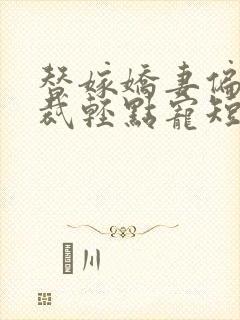 替嫁嬌妻偏
裁輕點寵短
川